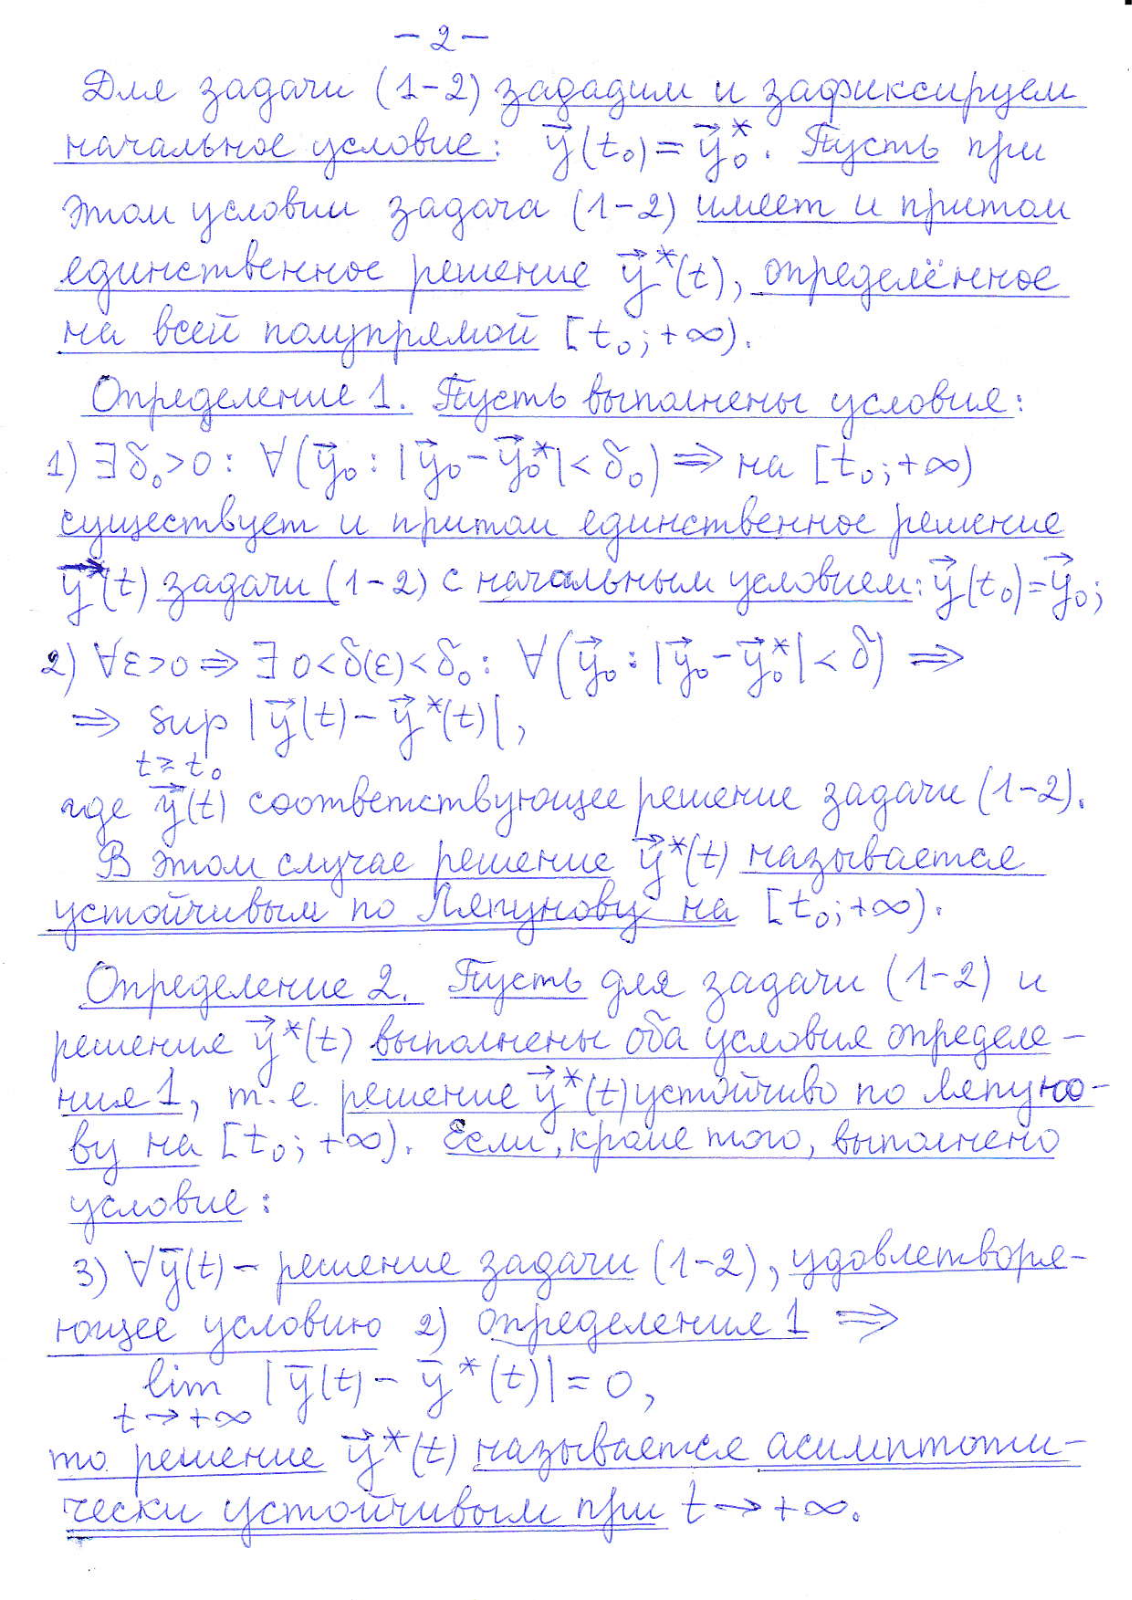 – 2 –
Для задачи (1–2) зададим и зафиксируем
начальное условие: y⃗(t₀) = y⃗₀*. Пусть при
этом условии задача (1–2) имеет и притом
единственное решение y⃗*(t), определённое
на всей полупрямой [t₀; +∞).
Определение 1. Пусть выполнены условия:
1) ∃ δ₀ > 0 : ∀(y⃗₀ : |y⃗₀ – y⃗₀*| < δ₀) ⇒ на [t₀; +∞)
существует и притом единственное решение
y⃗(t) задачи (1–2) с начальным условием: y⃗(t₀) = y⃗₀;
2) ∀ε > 0 ⇒ ∃ 0 < δ(ε) < δ₀ : ∀(y⃗₀ : |y⃗₀ – y⃗₀*| < δ) ⇒
⇒ sup |y⃗(t) – y⃗*(t)|,
t ≥ t₀
где y⃗(t) соответствующее решение задачи (1–2).
В этом случае решение y⃗*(t) называется
устойчивым по Ляпунову на [t₀; +∞).
Определение 2. Пусть для задачи (1–2) и
решения y⃗*(t) выполнены оба условия определе–
ния 1, т.е. решение y⃗*(t) устойчиво по Ляпуно–
ву на [t₀; +∞). Если, кроме того, выполнено
условие:
3) ∀ȳ(t) – решение задачи (1–2), удовлетворя–
ющее условию 2) определения 1 ⇒
lim |ȳ(t) – ȳ*(t)| = 0,
t → +∞
то решение y⃗*(t) называется асимптоти–
чески устойчивым при t → +∞.